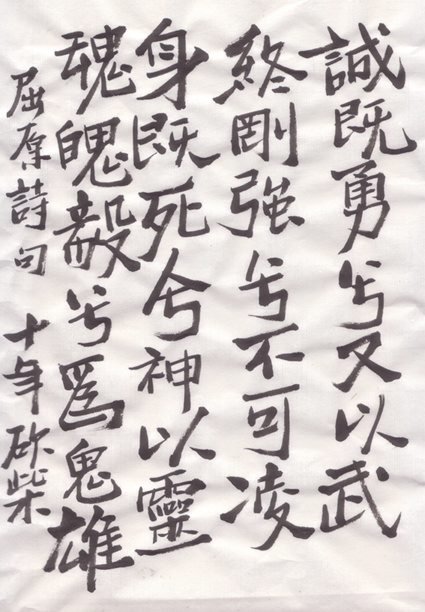 誠既勇兮又以武
終剛强兮不可凌
身既死兮神以靈
魂魄毅兮爲鬼雄
屈原詩句 十年砍柴